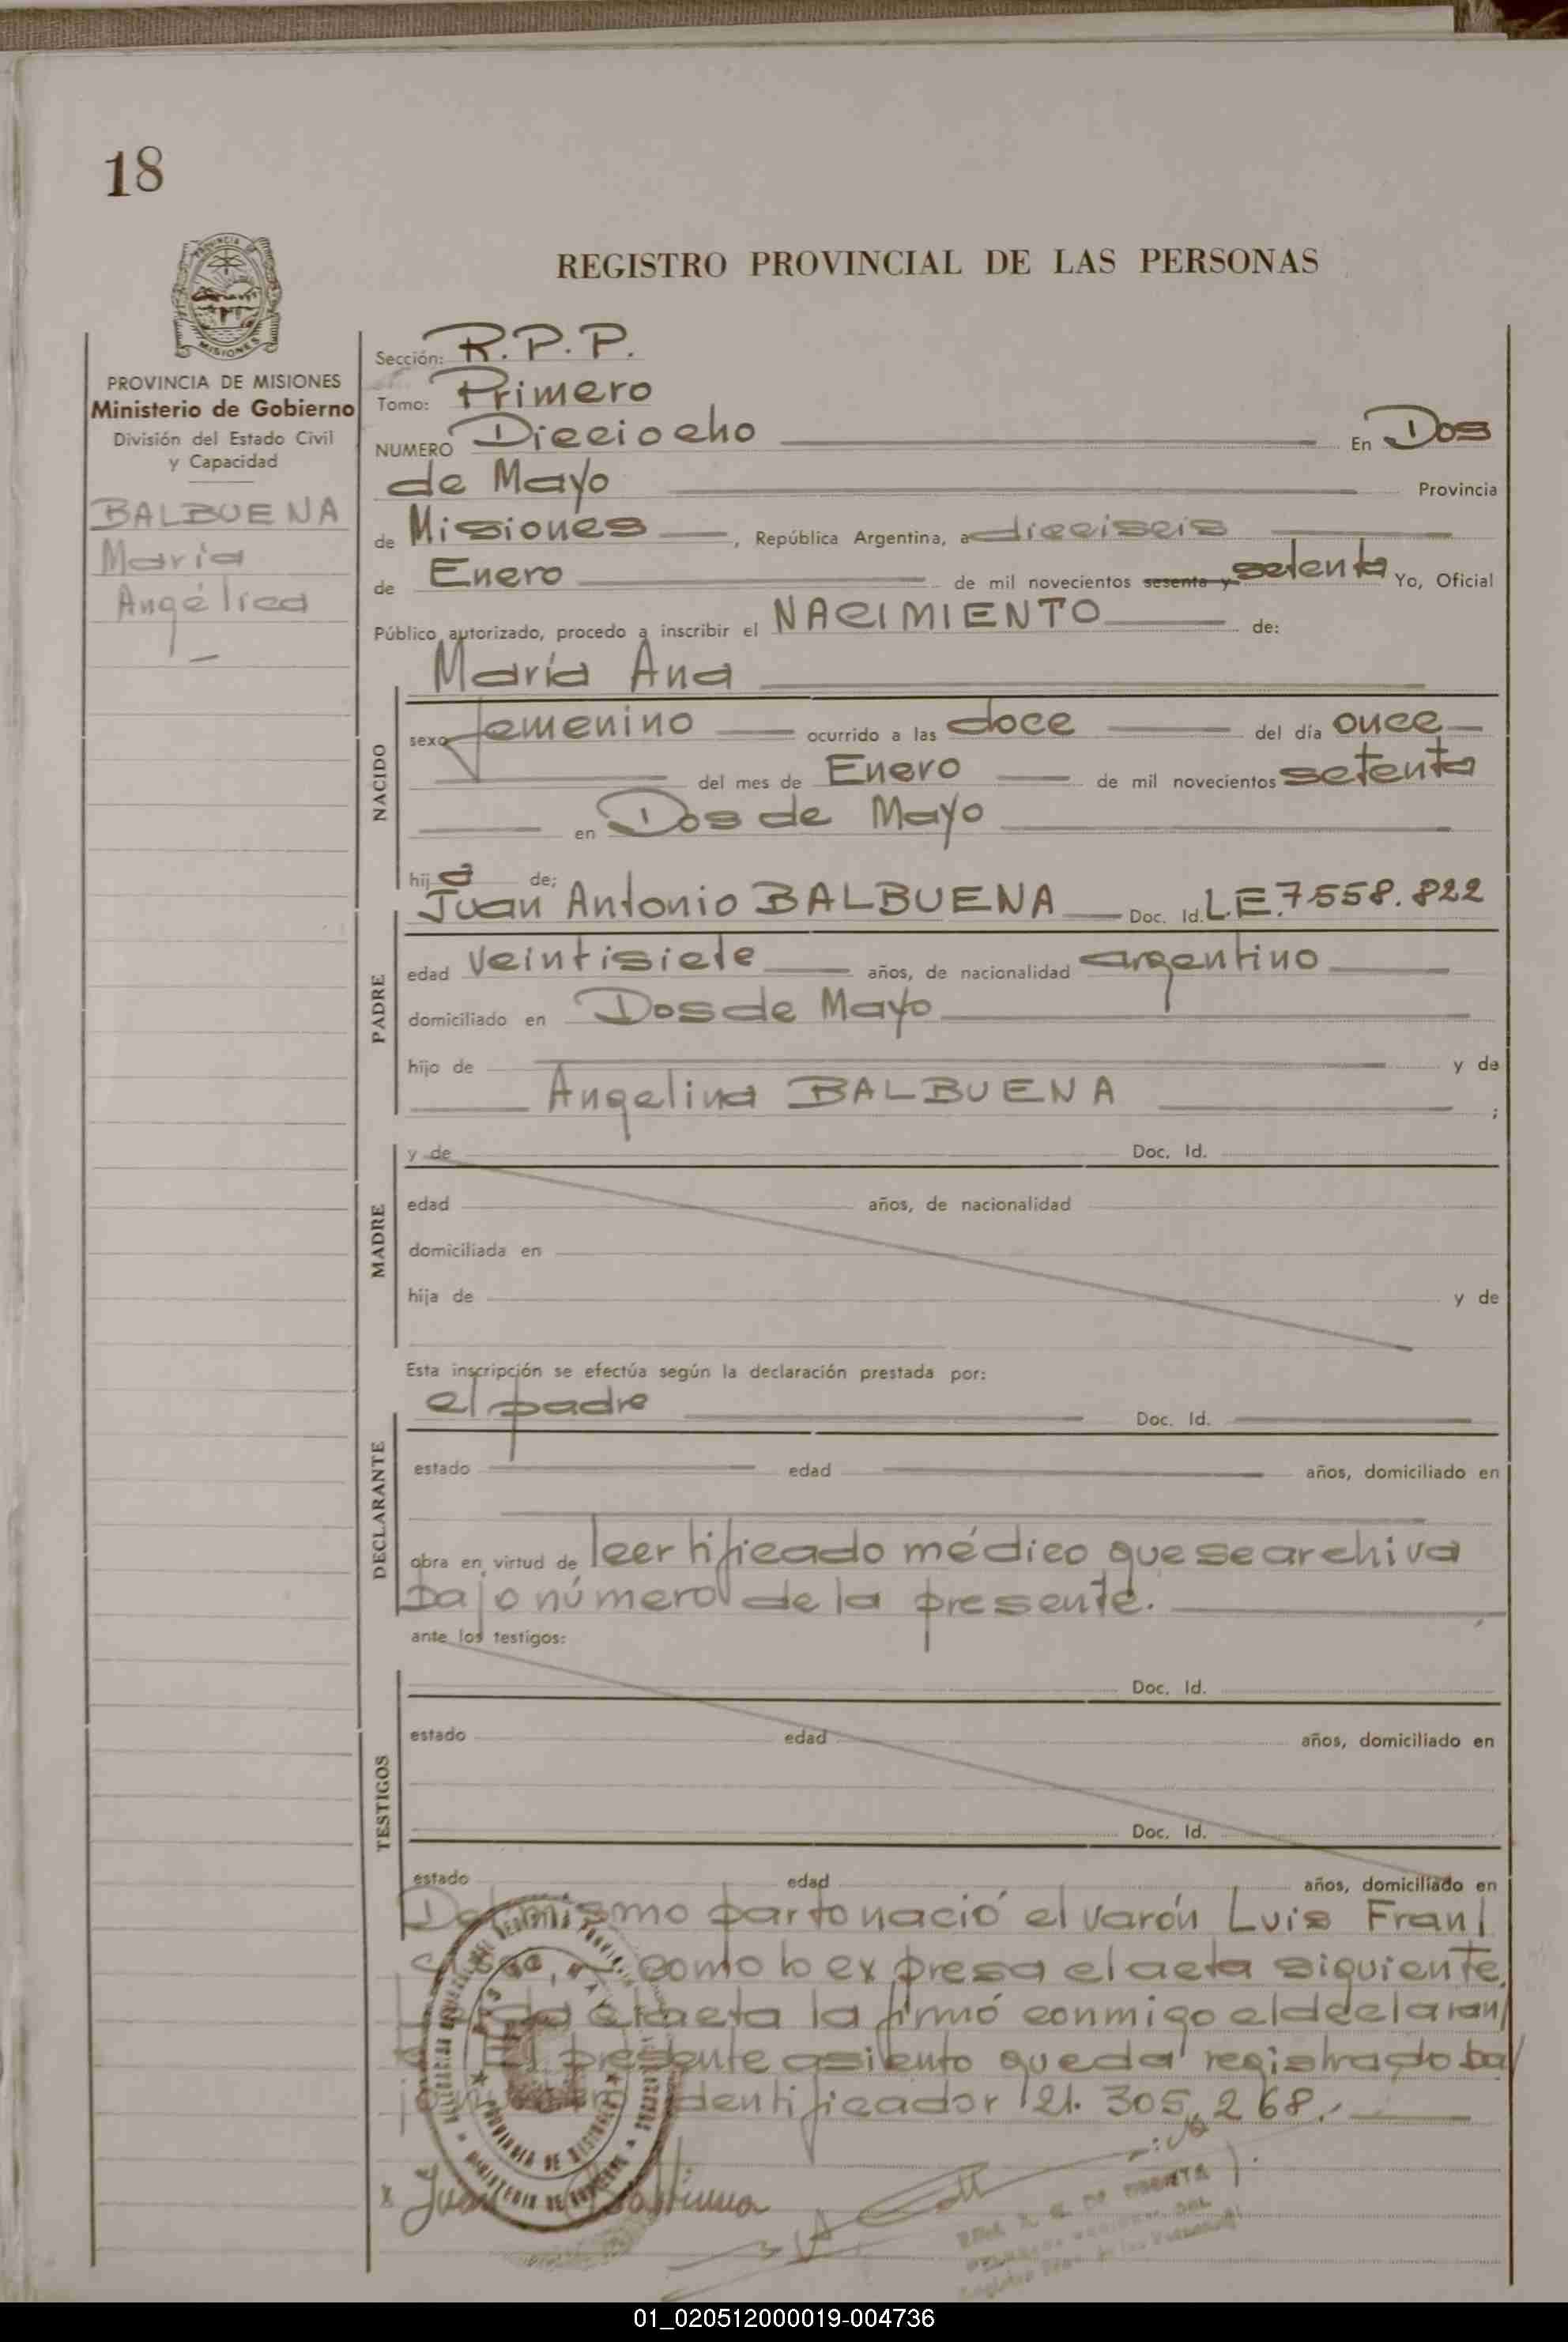 18
PROVINCIA
MISIONES
REGISTRO PROVINCIAL DE LAS PERSONAS
PROVINCIA DE MISIONES
Ministerio de Gobierno
División del Estado Civil
y Capacidad
BALBUENA
María
Angélica
Sección: R.P.P.
Tomo: Primero
NUMERO Dieciocho En Dos
de Mayo Provincia
de Misiones, República Argentina, a dieciseis
de Enero de mil novecientos sesenta y setenta Yo, Oficial
Público autorizado, procedo a inscribir el NACIMIENTO de:
María Ana
NACIDO
sexo femenino ocurrido a las doce del día once
del mes de Enero de mil novecientos setenta
en Dos de Mayo
hija de;
Juan Antonio BALBUENA Doc. Id. L.E.7.558.822
PADRE
edad veintisiete años, de nacionalidad argentino
domiciliado en Dos de Mayo
hijo de y de
Angelina BALBUENA ;
MADRE
y de Doc. Id.
edad años, de nacionalidad
domiciliada en
hija de y de
Esta inscripción se efectúa según la declaración prestada por:
el padre Doc. Id.
DECLARANTE
estado edad años, domiciliado en
obra en virtud de certificado médico que se archiva
bajo número de la presente.
ante los testigos:
TESTIGOS
Doc. Id.
estado edad años, domiciliado en
Doc. Id.
estado edad años, domiciliado en
mismo parto nació el varón Luis Fran/
como lo expresa el acta siguiente.
acta la firmó conmigo el declaran/
presente asiento queda registrado ba/
identificador 21.305.268.
PROVINCIA DE MISIONES
Juan
01_020512000019-004736